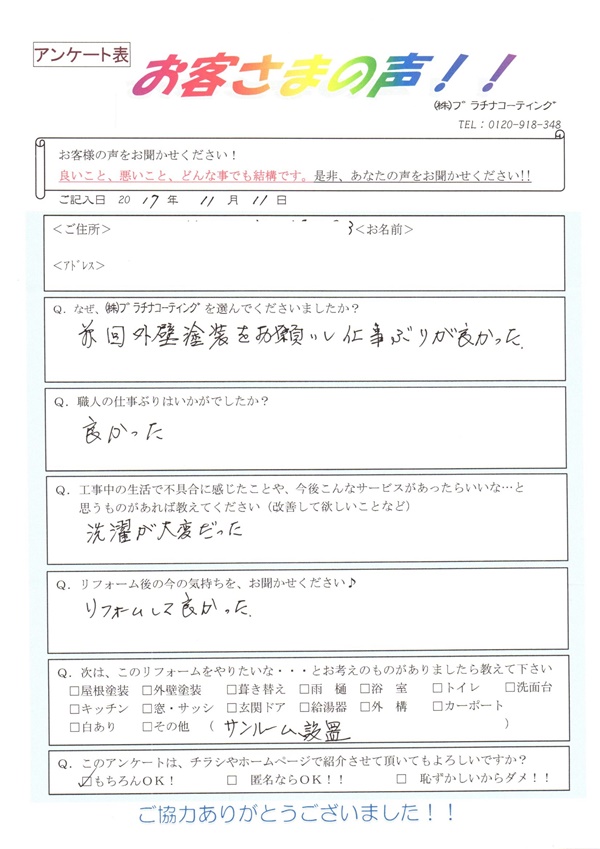 アンケート表
お客さまの声!!
㈱プラチナコーティング
TEL:0120-918-348
お客様の声をお聞かせください!
良いこと、悪いこと、どんな事でも結構です。是非、あなたの声をお聞かせください!!
ご記入日 20 17 年 11 月 11 日
<ご住所> 3 <お名前>
<アドレス>
Q. なぜ、㈱プラチナコーティングを選んでくださいましたか?
前回外壁塗装をお願いし仕事ぶりが良かった.
Q. 職人の仕事ぶりはいかがでしたか?
良かった
Q. 工事中の生活で不具合に感じたことや、今後こんなサービスがあったらいいな…と
思うものがあれば教えてください(改善して欲しいことなど)
洗濯が大変だった
Q. リフォーム後の今の気持ちを、お聞かせください♪
リフォームして良かった.
Q. 次は、このリフォームをやりたいな・・・とお考えのものがありましたら教えて下さい
□屋根塗装 □外壁塗装 □葺き替え □雨 樋 □浴 室 □トイレ □洗面台
□キッチン □窓・サッシ □玄関ドア □給湯器 □外 構 □カーポート
□白あり □その他 ( サンルーム設置 )
Q. このアンケートは、チラシやホームページで紹介させて頂いてもよろしいですか?
☑もちろんOK! □ 匿名ならOK!! □ 恥ずかしいからダメ!!
ご協力ありがとうございました!!